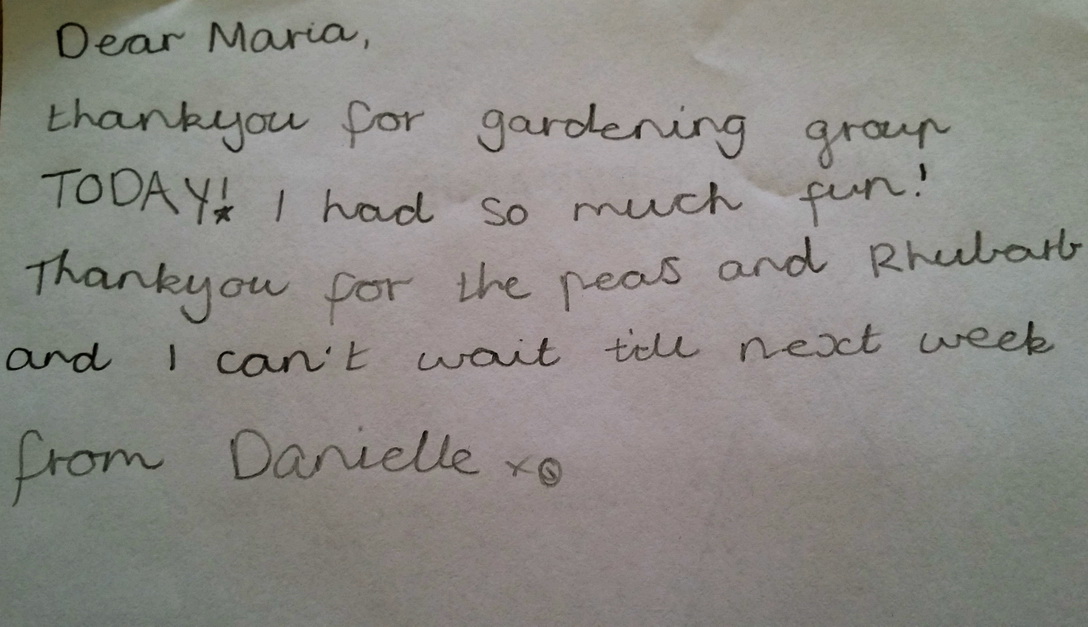 Dear Maria,
thankyou for gardening group
TODAY! I had so much fun!
Thankyou for the peas and Rhubarb
and I can't wait till next week
from Danielle x